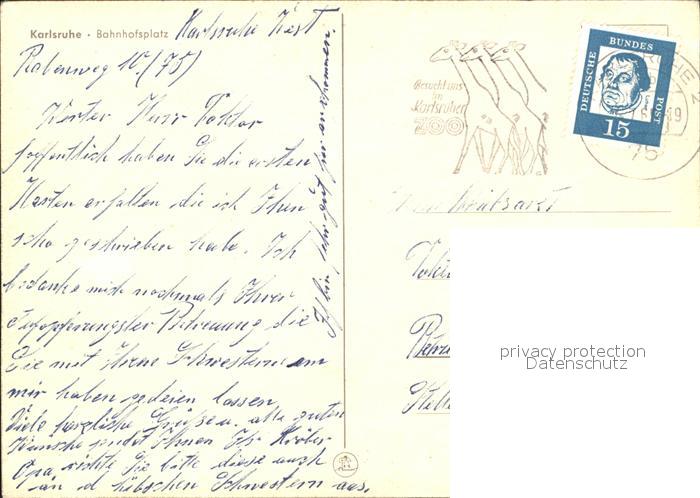 Karlsruhe · Bahnhofsplatz
Karlsruhe West.
Rabenweg 10 (75)
Herr Doktor
hoffentlich haben Sie die ersten
Karten erhalten die ich Ihen
scho geschrieben habe. Ich
bedanke mich nochmals Ihrer
Aufopferungsfter Betreuung die
Sie mit Ihrene Schwestern an
mir haben gedeien lassen
Viele herzliche Grüße u. alle guten
Wünsche sendet Ihnen Ihr
Opa richte Sie bitte diese auch
an d hübschen Schwestern aus.
Ich bin sehr gut hir ankommen.
Besucht uns
im
Karlsruher
ZOO
DEUTSCHE
BUNDES
POST
15
75
privacy protection
Datenschutz